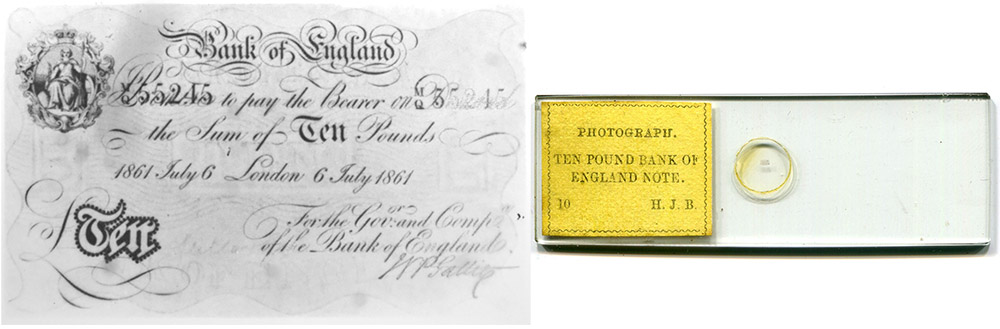 Bank of England
55245 to pay the Bearer on 35245
the Sum of Ten Pounds
1861 July 6 London 6 July 1861
For the Govr. and Compa.
£ Ten
of the Bank of England.
PHOTOGRAPH.
TEN POUND BANK OF
ENGLAND NOTE.
10 H. J. B.